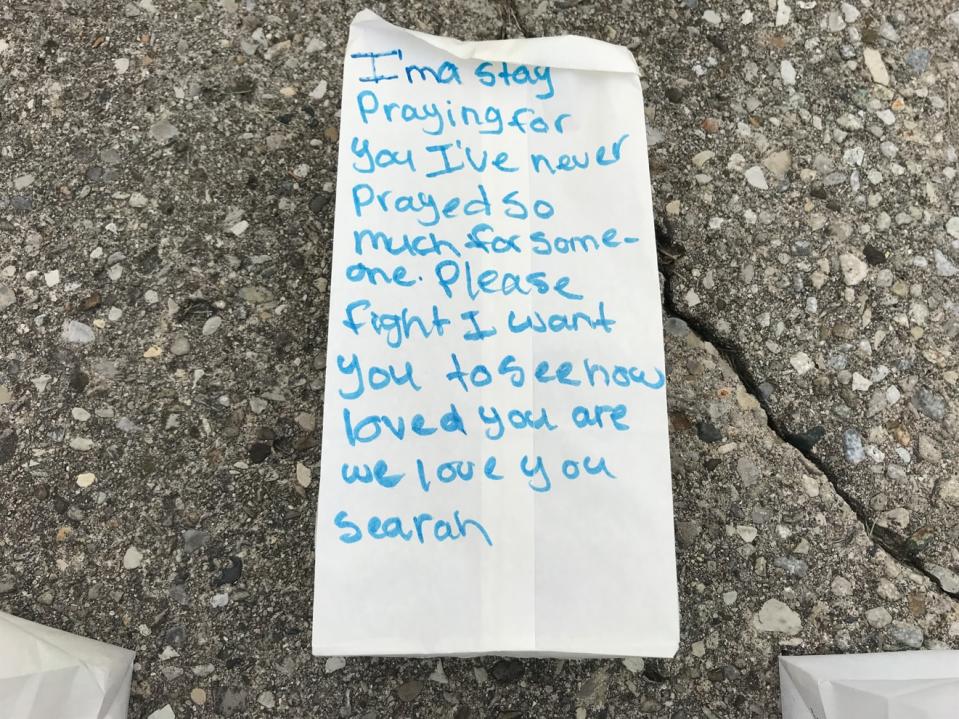 I'ma stay
Praying for
you I've never
Prayed so
much for some-
one. Please
fight I want
you to see how
loved you are
we love you
searah